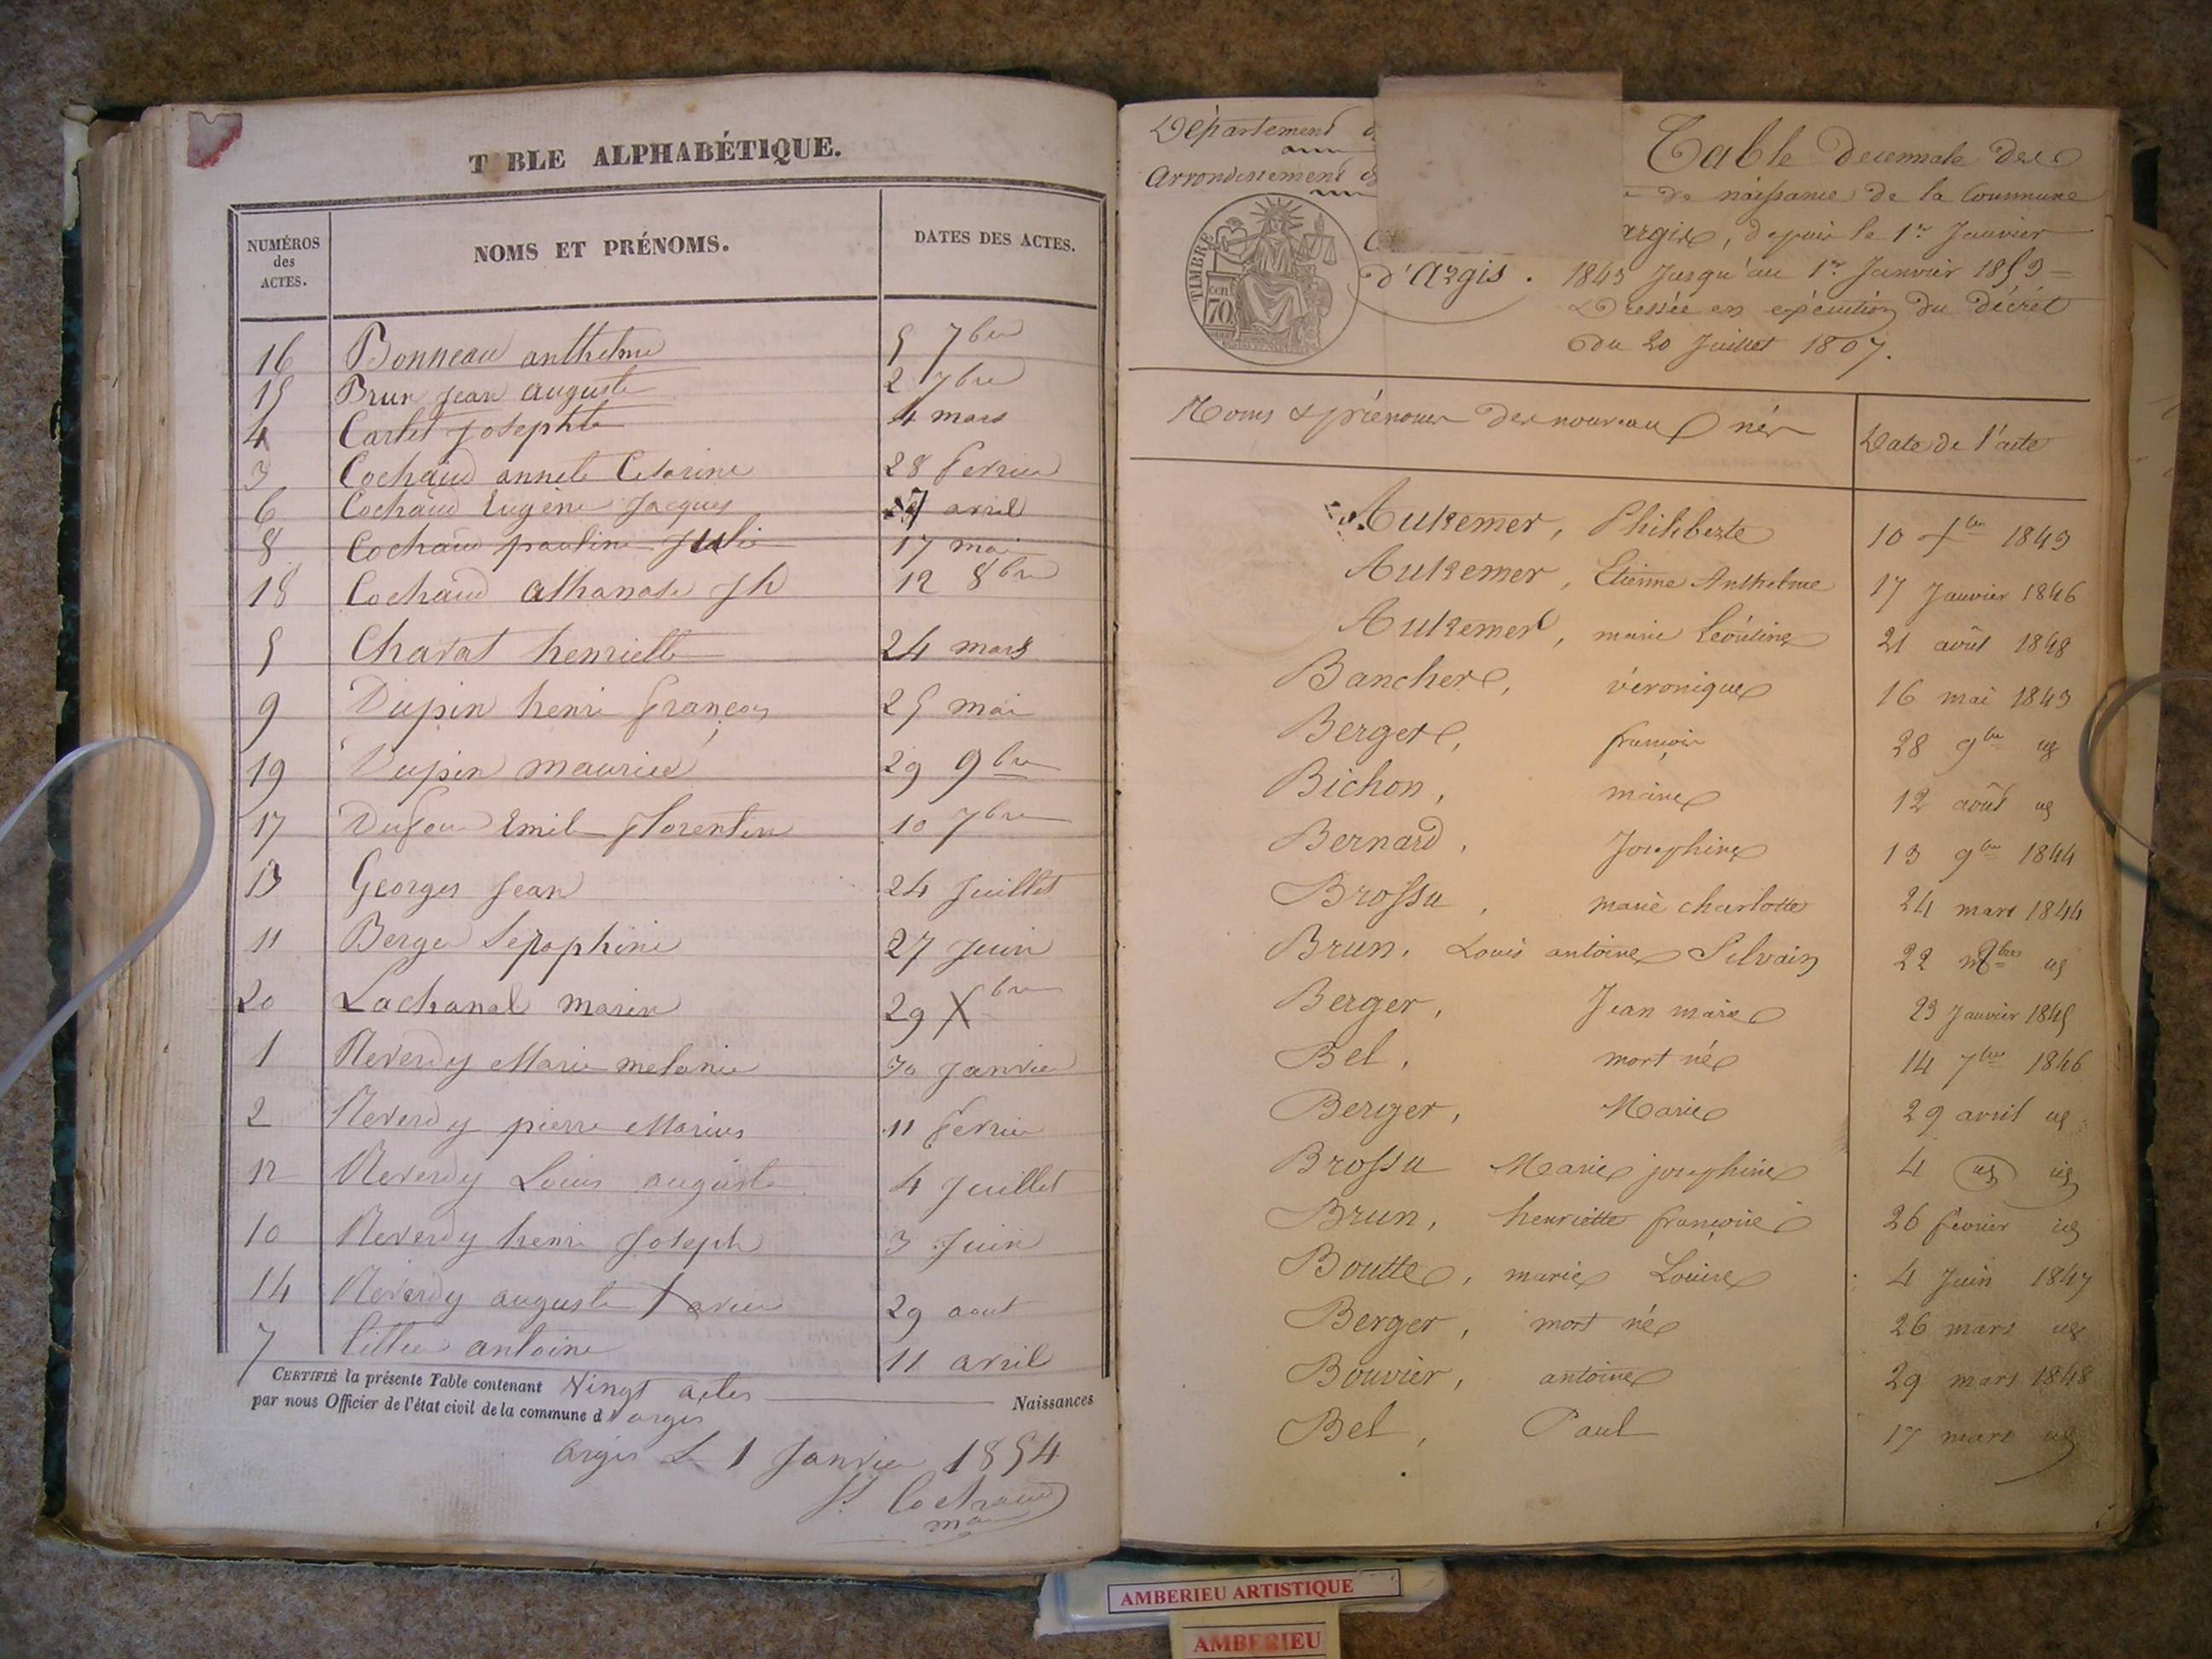 TABLE ALPHABÉTIQUE.
NUMÉROS des ACTES. NOMS ET PRÉNOMS. DATES DES ACTES.
16 Bonneau anthelme 5 7bre
15 Brun jean auguste 2 7bre
4 Carlet Josephte 4 mars
3 Cochaud annele Cesarine 28 fevrier
6 Cochaud Eugène Jacques 7 avril
8 Cochaud pauline Julie 17 mai
18 Cochaud athanase jh 12 8bre
5 Charat henriette 24 mars
9 Dupin henri françois 25 mai
19 Dupin maurice 29 9bre
17 Dufour Emile florentin 10 7bre
13 Georges jean 24 juillet
11 Berger 27 juin
20 Lachanal marin 29 Xbre
1 Reverdy Marie melanie 30 janvier
2 Reverdy pierre Marius 11 fevrier
12 Reverdy Louis auguste 4 juillet
10 Reverdy henri joseph 3 juin
14 Reverdy auguste Xavier 29 aout
7 antoine 11 avril
CERTIFIÉ la présente Table contenant Vingt actes Naissances
par nous Officier de l'état civil de la commune d'argis
argis Le 1 Janvier 1854
Cochaud
Département
Arrondissement
TIMBRE
70
d'Argis.
Table decennale des
de naissance de la Commune
argis, depuis le 1er Janvier
1843 Jusqu'au 1er Janvier 1853
Dressée en exécution du décret
du 20 Juillet 1807.
Noms & prénoms des nouveaux nés Date de l'acte
Aukemer, Philiberte 10 Xbre 1843
Aukemer, Etienne Anthelme 17 Janvier 1846
Aukemer, marie Léontine 21 août 1848
Bancher, véronique 16 mai 1843
Berger, françois 28 9bre id
Bichon, marie 12 août id
Bernard, Josephine 13 9bre 1844
Brossu, marie charlotte 24 mars 1844
Brun, Louis antoine Silvain 22 id
Berger, Jean marie 23 Janvier 1845
Bel, mort né 14 7bre 1846
Berger, Marie 29 avril id
Brossu Marie josephine 4 id id
Brun, henriette françoise 26 février id
Boutte, marie Louise 4 Juin 1847
Berger, mort né 26 mars id
Bouvier, antoine 29 mars 1848
Bel, Paul 17 mars id
AMBERIEU ARTISTIQUE
AMBERIEU